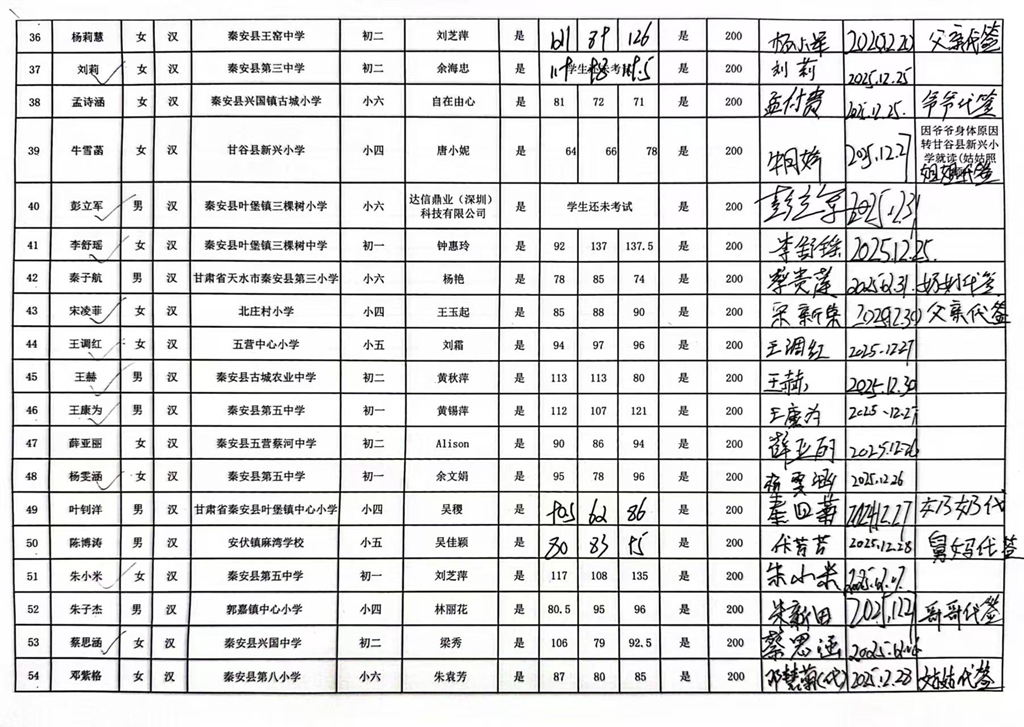 36 杨莉慧 女 汉 秦安县王窑中学 初二 刘芝萍 是 89 126 是 200 父亲代签
37 刘莉 女 汉 秦安县第三中学 初二 余海忠 是 学生还未考试 是 200 刘莉 2025.12.25
38 孟诗涵 女 汉 秦安县兴国镇古城小学 小六 自在由心 是 81 72 71 是 200 孟付贵 2025.12.25. 爷爷代签
39 牛雪菡 女 汉 甘谷县新兴小学 小四 唐小妮 是 64 66 78 是 200 2025.12.27 因爷爷身体原因
转甘谷县新兴小
学就读(姑姑照
姐姐代签
40 彭立军 男 汉 秦安县叶堡镇三棵树小学 小六 达信鼎业（深圳）
科技有限公司 是 学生还未考试 是 200 彭立军 2025.12.31
41 李舒瑶 女 汉 秦安县叶堡镇三棵树中学 初一 钟惠玲 是 92 137 137.5 是 200 李舒瑶 2025.12.25.
42 秦子航 男 汉 甘肃省天水市秦安县第三小学 小六 杨艳 是 78 85 74 是 200 蔡贵莲 奶奶代签
43 宋凌菲 女 汉 北庄村小学 小四 王玉起 是 85 88 90 是 200 宋新荣 父亲代签
44 王调红 女 汉 五营中心小学 小五 刘霜 是 94 97 96 是 200 王调红 2025.12.27
45 王赫 男 汉 秦安县古城农业中学 初二 黄秋萍 是 113 113 80 是 200 王赫 2025.12.30
46 王康为 男 汉 秦安县第五中学 初一 黄锡萍 是 112 107 121 是 200 王康为 2025.12.27
47 薛亚丽 女 汉 秦安县五营蔡河中学 初二 Alison 是 90 86 94 是 200 薛亚丽 2025.12.26
48 杨雯涵 女 汉 秦安县第五中学 初一 余文娟 是 95 78 96 是 200 杨雯涵 2025.12.26
49 叶钊洋 男 汉 甘肃省秦安县叶堡镇中心小学 小四 吴稷 是 62 86 是 200 奶奶代
50 陈博涛 男 汉 安伏镇麻湾学校 小五 吴佳颖 是 80 83 是 200 2025.12.28 舅妈代签
51 朱小米 女 汉 秦安县第五中学 初一 刘芝萍 是 117 108 135 是 200 朱小米
52 朱子杰 男 汉 郭嘉镇中心小学 小四 林丽花 是 80.5 95 96 是 200 朱新田 哥哥代签
53 蔡思涵 女 汉 秦安县兴国中学 初二 梁秀 是 106 79 92.5 是 200 蔡思涵
54 邓紫格 女 汉 秦安县第八小学 小六 朱袁芳 是 87 80 85 是 200 2025.12.28 姑姑代签